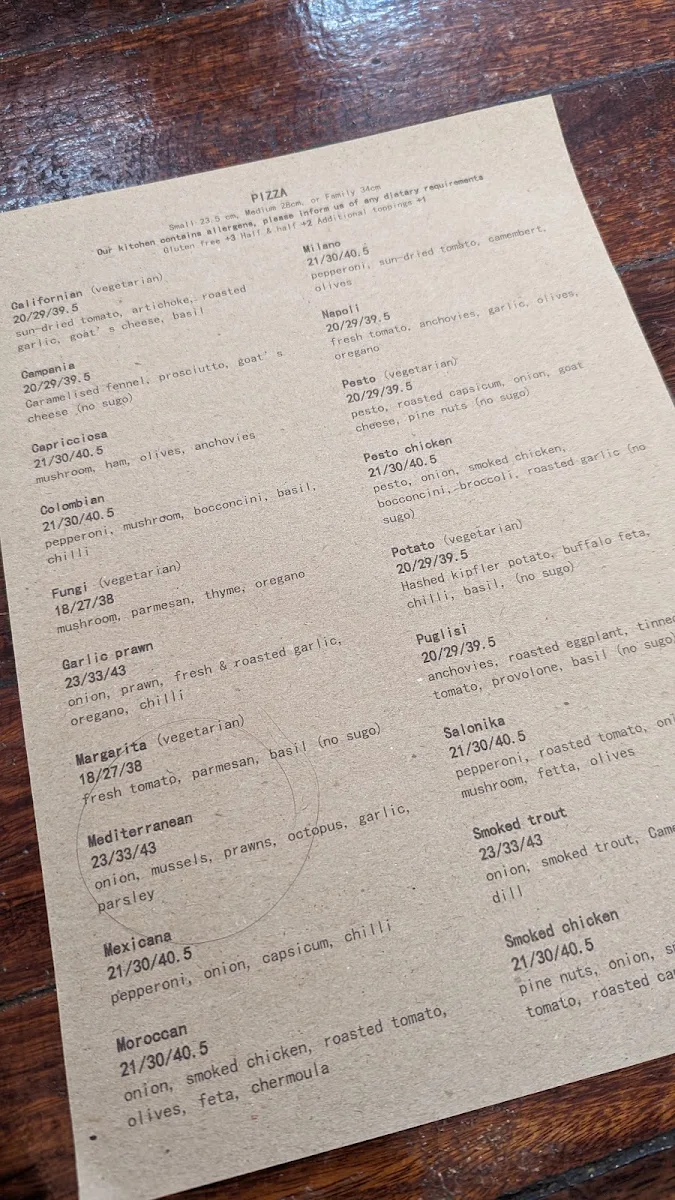 PIZZA
Small 23.5 cm, Medium 28cm, or Family 34cm
Our kitchen contains allergens, please inform us of any dietary requirements
Gluten free +3 Half & half +2 Additional toppings +1
Californian (vegetarian)
20/29/39.5
sun-dried tomato, artichoke, roasted
garlic, goat's cheese, basil
Campania
20/29/39.5
Caramelised fennel, prosciutto, goat's
cheese (no sugo)
Capricciosa
21/30/40.5
mushroom, ham, olives, anchovies
Colombian
21/30/40.5
pepperoni, mushroom, bocconcini, basil,
chilli
Fungi (vegetarian)
18/27/38
mushroom, parmesan, thyme, oregano
Garlic prawn
23/33/43
onion, prawn, fresh & roasted garlic,
oregano, chilli
Margarita (vegetarian)
18/27/38
fresh tomato, parmesan, basil (no sugo)
Mediterranean
23/33/43
onion, mussels, prawns, octopus, garlic,
parsley
Mexicana
21/30/40.5
pepperoni, onion, capsicum, chilli
Moroccan
21/30/40.5
onion, smoked chicken, roasted tomato,
olives, feta, chermoula
Milano
21/30/40.5
pepperoni, sun-dried tomato, camembert,
olives
Napoli
20/29/39.5
fresh tomato, anchovies, garlic, olives,
oregano
Pesto (vegetarian)
20/29/39.5
pesto, roasted capsicum, onion, goat
cheese, pine nuts (no sugo)
Pesto chicken
21/30/40.5
pesto, onion, smoked chicken,
bocconcini, broccoli, roasted garlic (no
sugo)
Potato (vegetarian)
20/29/39.5
Hashed kipfler potato, buffalo feta,
chilli, basil, (no sugo)
Puglisi
20/29/39.5
anchovies, roasted eggplant, tinned
tomato, provolone, basil (no sugo)
Salonika
21/30/40.5
pepperoni, roasted tomato,
mushroom, fetta, olives
Smoked trout
23/33/43
onion, smoked trout,
dill
Smoked chicken
21/30/40.5
pine nuts, onion,
tomato, roasted